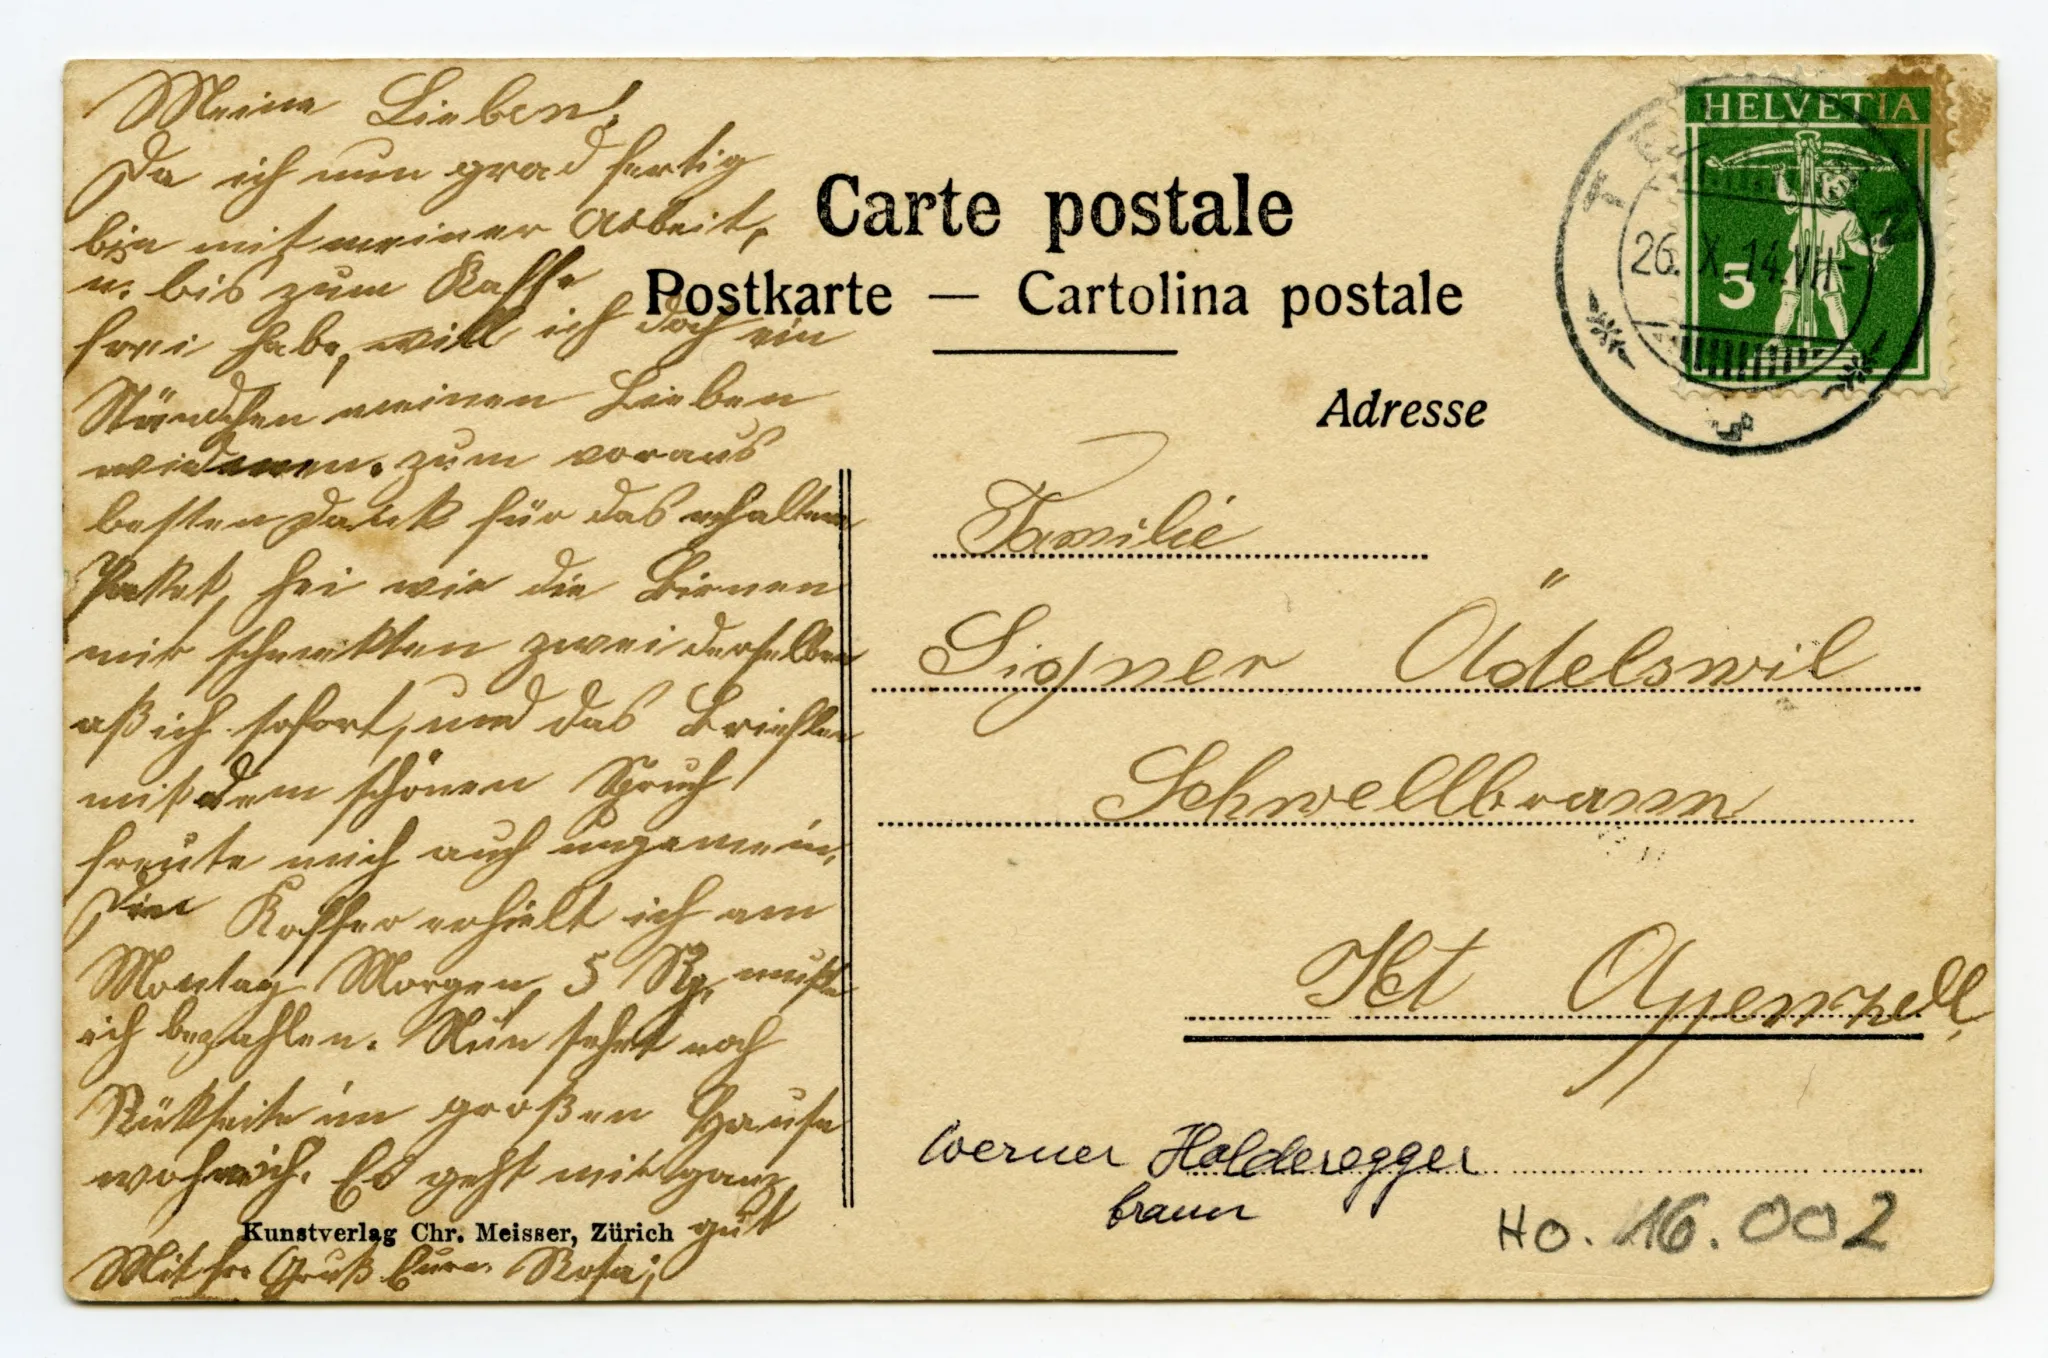 Meine Lieben!
Da ich nun grad fertig
bin mit meiner Arbeit,
u. bis zum Kaffe
frei habe, will ich doch ein
Ständchen meinen Lieben
widmen. zum voraus
besten Dank für das erhaltene
Paket, hei wie die Birnen
mir schmekten zwei derselben
aß ich sofort, und das Brieflein
mit dem schönen Spruch
freute mich auch ungemein,
Den Koffer erhielt ich am
Montag Morgen, 5 Rp. mußte
ich bezahlen. Nun sehet noch
Rükseite im großen Hause
wohn ich. Es geht mir ganz
gut
Mit fr. Gruß Eure Rosa;
Kunstverlag Chr. Meisser, Zürich
Carte postale
Postkarte — Cartolina postale
Adresse
HELVETIA
5
26. X. 14. VII-
Familie
Signer Ädelswil
Schwellbrunn
Kt Appenzell,
Werner Holderegger
braun
HO. 16.002